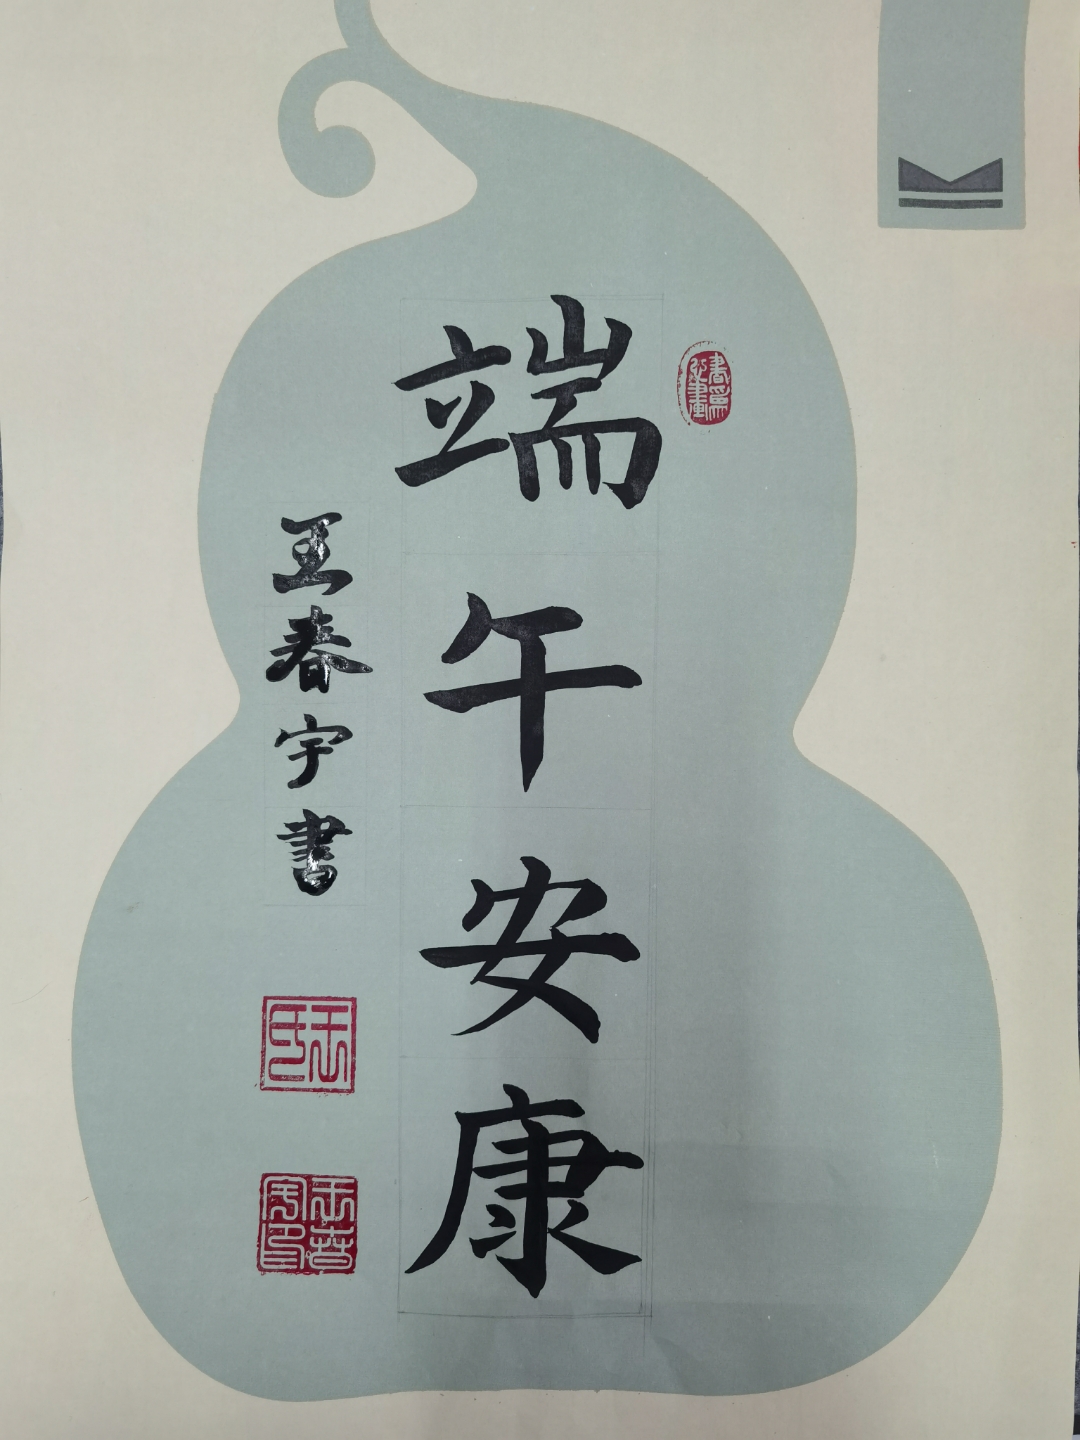 端午安康
王春宇書